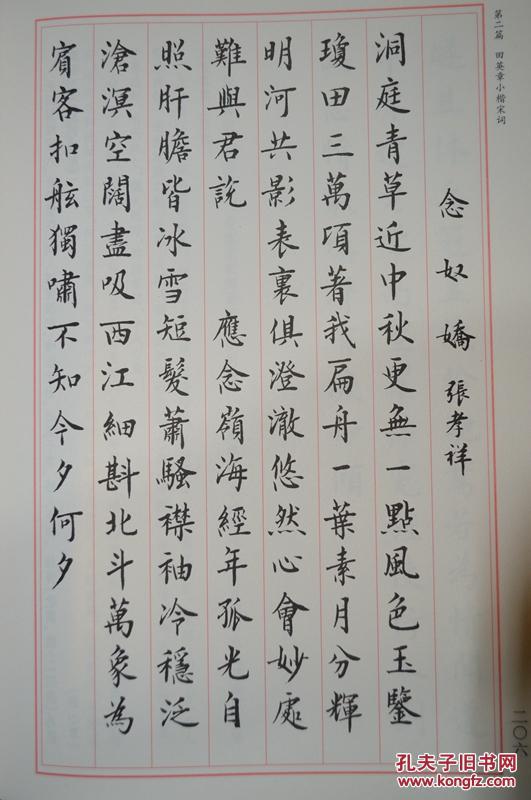 第二篇 田英章小楷宋词
念奴嬌 張孝祥
洞庭青草近中秋更無一點風色玉鑒
瓊田三萬頃著我扁舟一葉素月分輝
明河共影表裏俱澄澈悠然心會妙處
難與君說 應念嶺海經年孤光自
照肝膽皆冰雪短髮蕭騷襟袖冷穩泛
滄溟空闊盡吸西江細斟北斗萬象為
賓客扣舷獨嘯不知今夕何夕
二〇六
孔夫子旧书网
www.kongfz.com